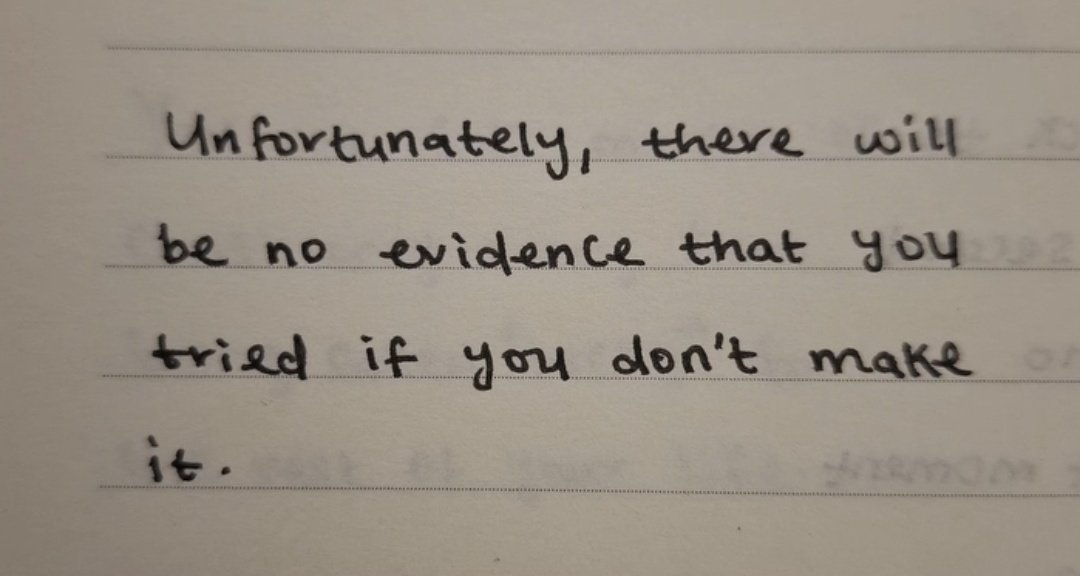 Unfortunately, there will
be no evidence that you
tried if you don't make
it.